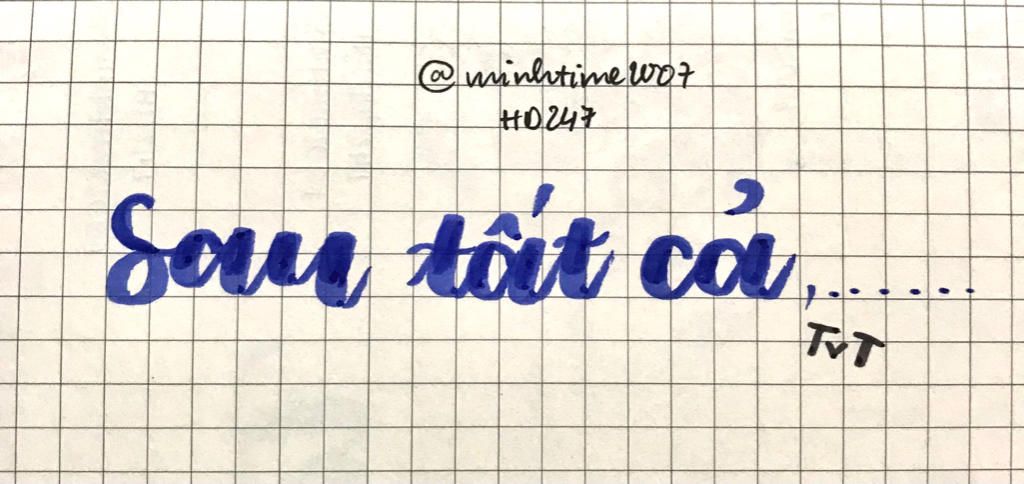 @minhtime2007
HD247
Sau tất cả,......
TvT